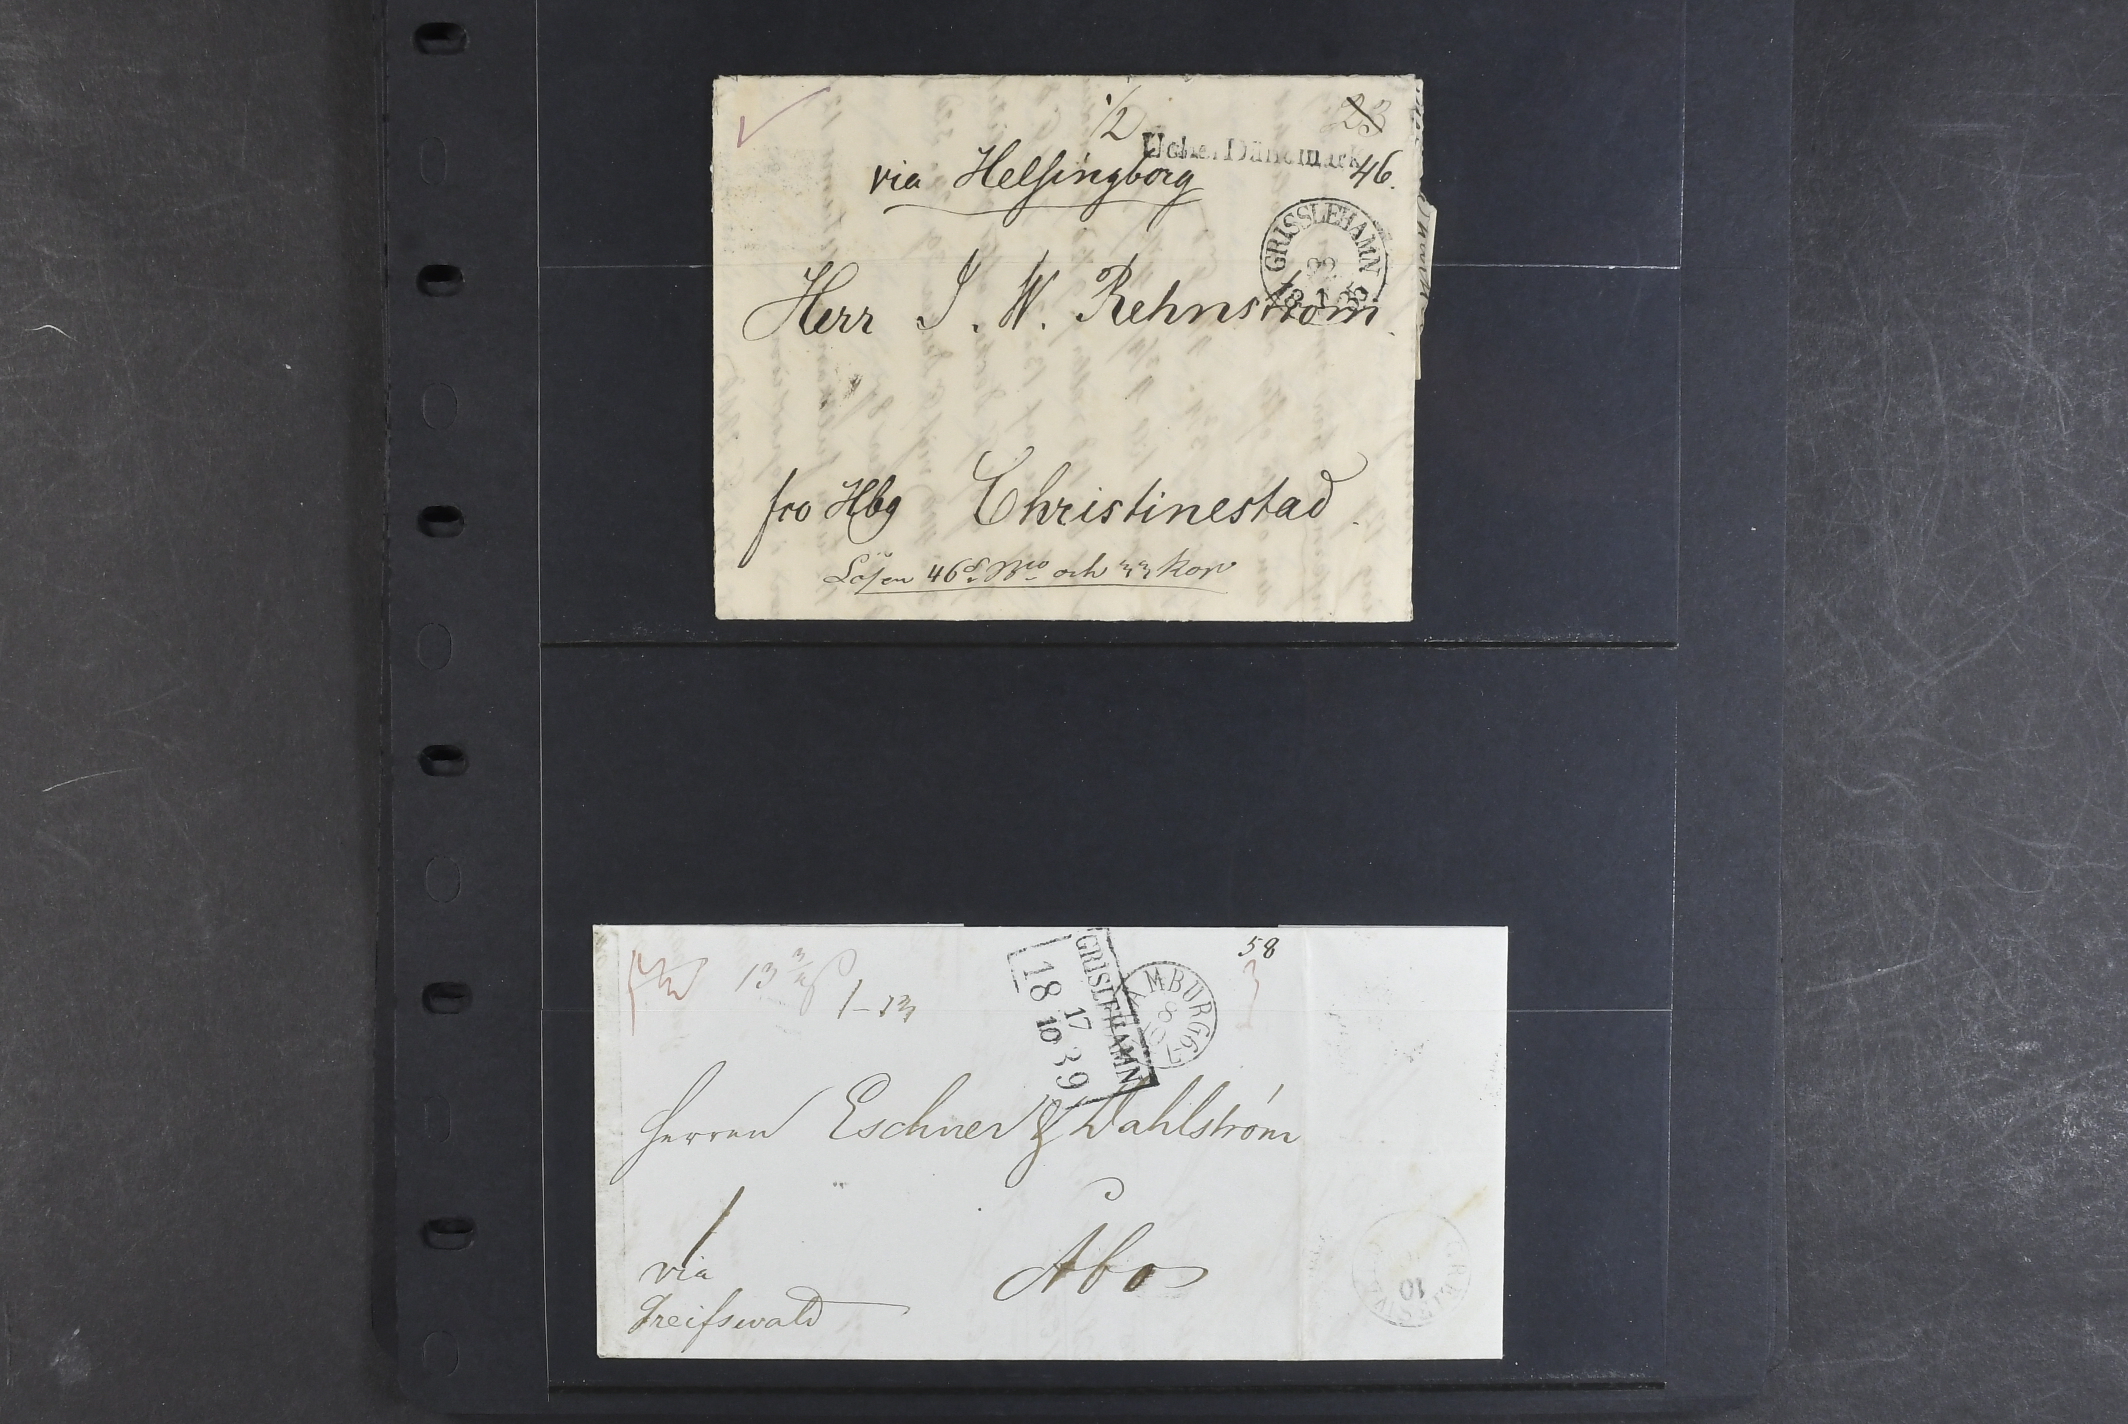 1/2
23
Ueber Dänemark
46.
via Helsingborg
GRISSLEHAMN
22
18 1
Herr J. W. Rehnström.
fco Hbg Christinestad.
Lösen 46 s. Bco och 33 kop
58
13 3/4
1-13
GRISLEHAMN
17
18 10 39
MBURG
8
Herren Eschner & Dahlström
Åbo
via
Greifswald
10